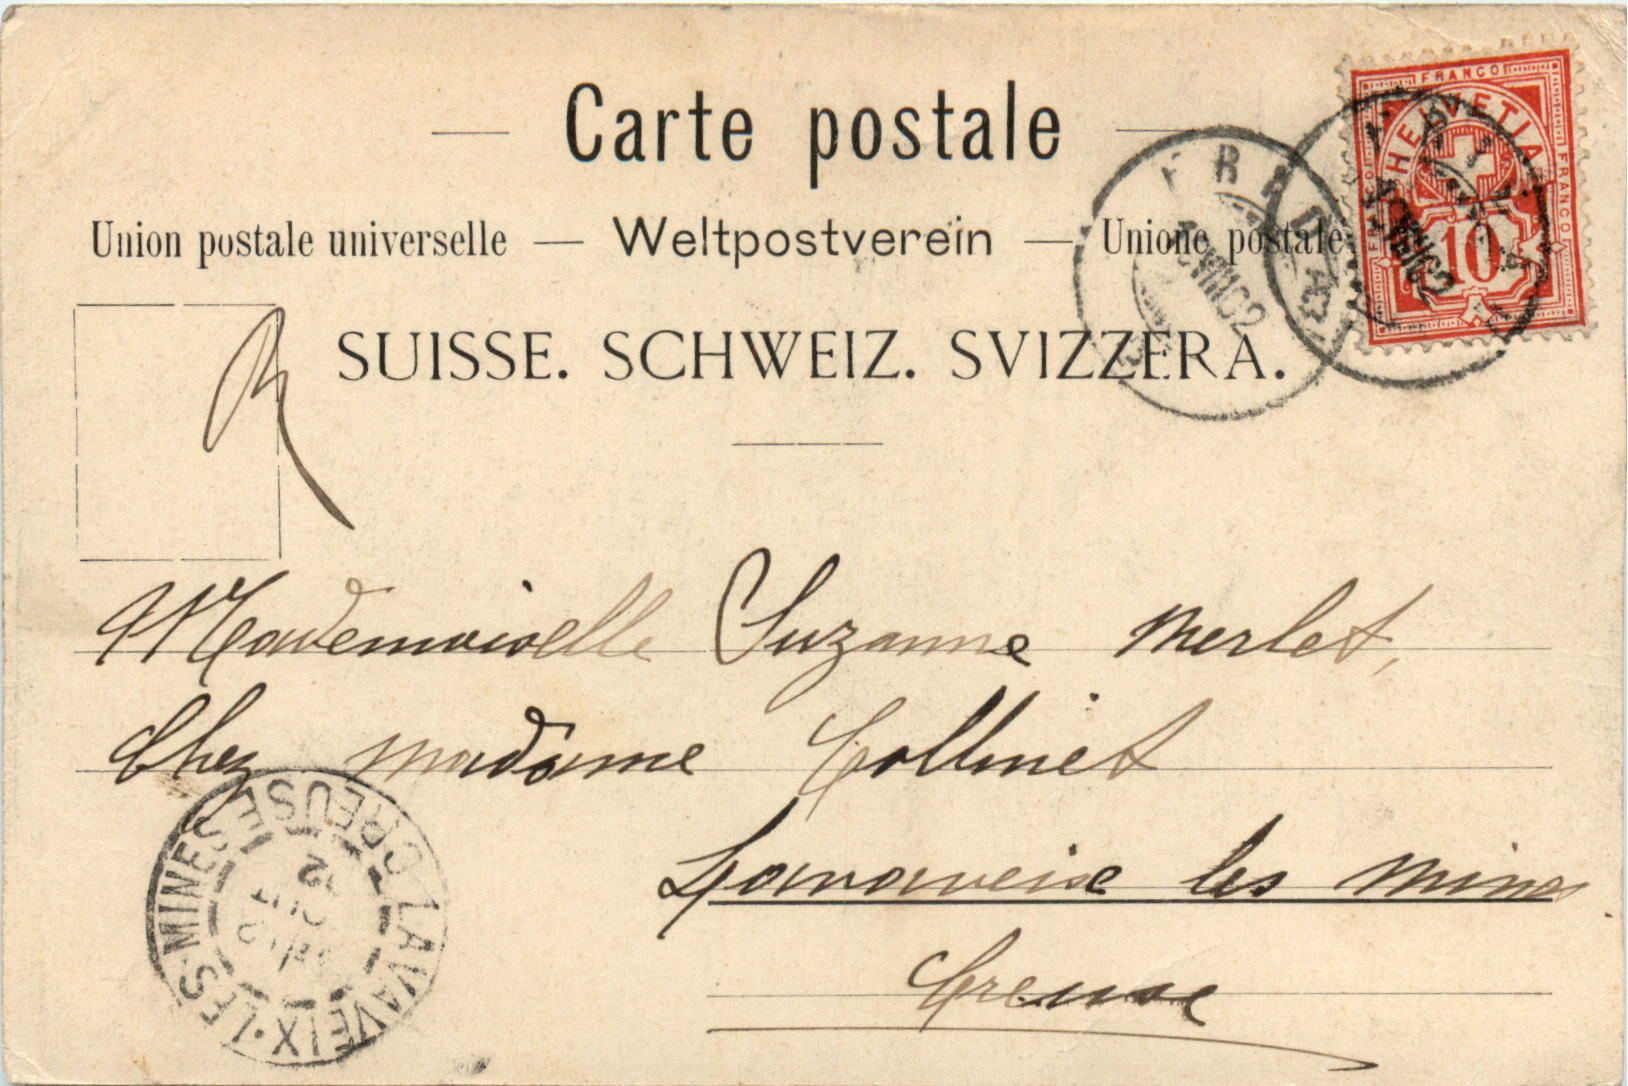 Carte postale
Union postale universelle — Weltpostverein — Unione postale
SUISSE. SCHWEIZ. SVIZZERA.
FRANCO
HELVETIA
FRANCO
FRANCO
10
VIII 02
Mademoiselle Suzanne Merlet,
Chez madame Collinet
Lavaveix les mines
Creuse
LAVAVEIX-LES-MINES CREUSE